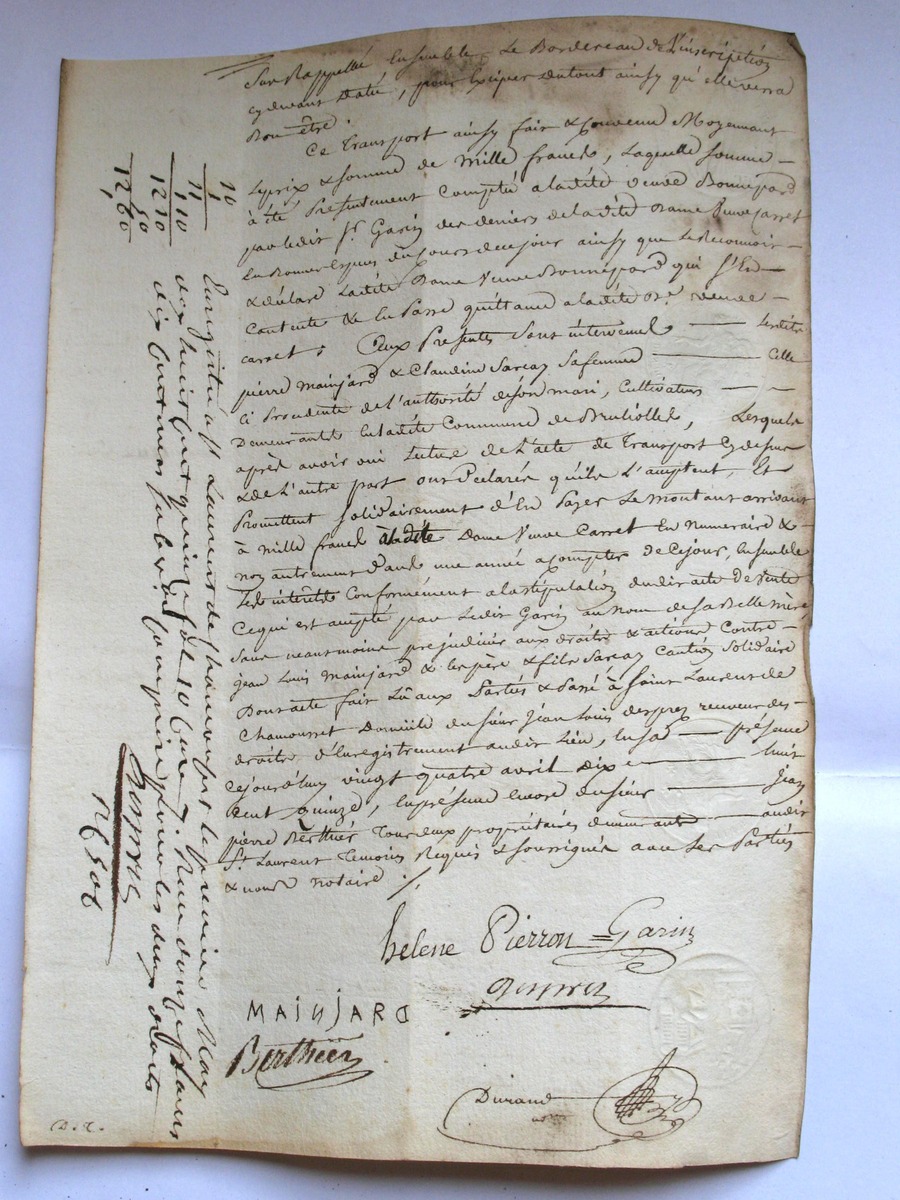 Sus Rappellé Ensemble Le Bordereau de L'inscription
cydevant Daté, pour Exciper dutout ainsy qu'elle verra
Bon être.
Ce Transport ainsy fait & Convenu Moyennant
Leprix & somme de Mille francs, Laquelle somme
à été Présentement Comptée aladite veuve Bonnepard
par ledit Sr. Garin des deniers deladite Dame veuve Carret
En du Cours decejour ainsy que Le Reconnoit
& déclare Ladite Dame Veuve Bonnepard qui S'En
Contente & En Passe quittance aladite De. veuve
Carret; Aux Presentes Sont intervenus
pierre Mainjard & Claudine Sarcay Safemme Celle
Ci Procedente de L'authorité deson mari, Cultivateurs
Demeurants Enladite Commune de Brulliolles, Lesquels
après avoir oui Lecture de L'acte de Transport Cy dessus
& de L'autre part ont Déclaré qu'ils L'acceptent, Et
Promettent Solidairement d'En Payer Le montant arrivant
à mille francs àladite Dame Veuve Carret En Numeraire &
non autrement Dans une année acompter de Cejour, Ensemble
Les intérêts Conformément alastipulation dudit acte De Vente
Cequi est accepté par Ledit Garin au Nom de sa Belle Mère
Sans neantmoins préjudicier aux droits & actions Contre
jean Louis Mainjard & les père & fils Sarcay Caution Solidaire
Dont acte fait Lû aux Parties & Passé à Saint Laurent de
Chamousset Domicile du sieur Jean Louis despres receveur des
droits d'Enregistrement audit Lieu, Ensa présence
Cejourd'huy vingt quatre avril dix huit
Cent quinze, Enprésence encore du sieur Jean
pierre Berthier Tous deux propriétaires demeurants audit
St. Laurent Temoins Requis & Soussignés avec Les Parties
& nous notaire ./.
helene Pierron = Garin
Despres
MAINJARD
Berthier
Durand
D. T.
Enregistré à St Laurent de Chamousset le premier May
dix huit cent quinze fol. 10 Case 7. Reçu douze francs
dix Centimes Subvention comprise pour les deux droits
Despres
11
1,10
12,10
50
12,60